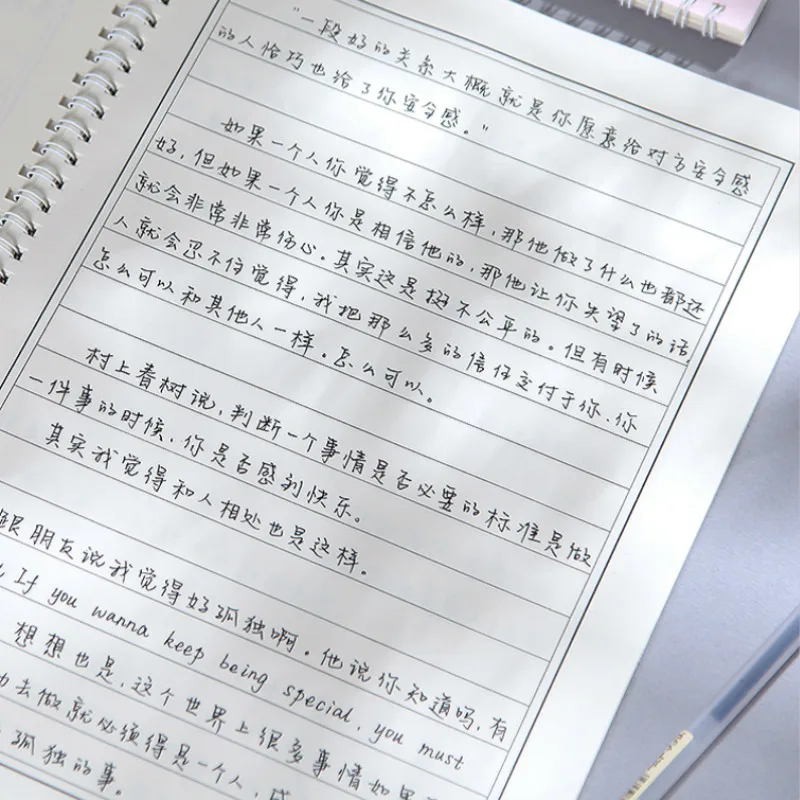 "一段好的关系大概就是你愿意给对方安全感
的人恰巧也给了你安全感。"
如果一个人你觉得不怎么样，那他做了什么也都还
好，但如果一个人你是相信他的，那他让你失望了的话，
就会非常非常伤心。其实这是挺不公平的。但有时候
人就会忍不住觉得，我把那么多的信任交付于你，你
怎么可以和其他人一样。怎么可以。
村上春树说，判断一个事情是否必要的标准是做
一件事的时候，你是否感到快乐。
其实我觉得和人相处也是这样。
跟朋友说我觉得好孤独啊。他说你知道吗，有
If you wanna keep being special, you must
想想也是，这个世界上很多事情如果
去做就必须得是一个人，
孤独的事。